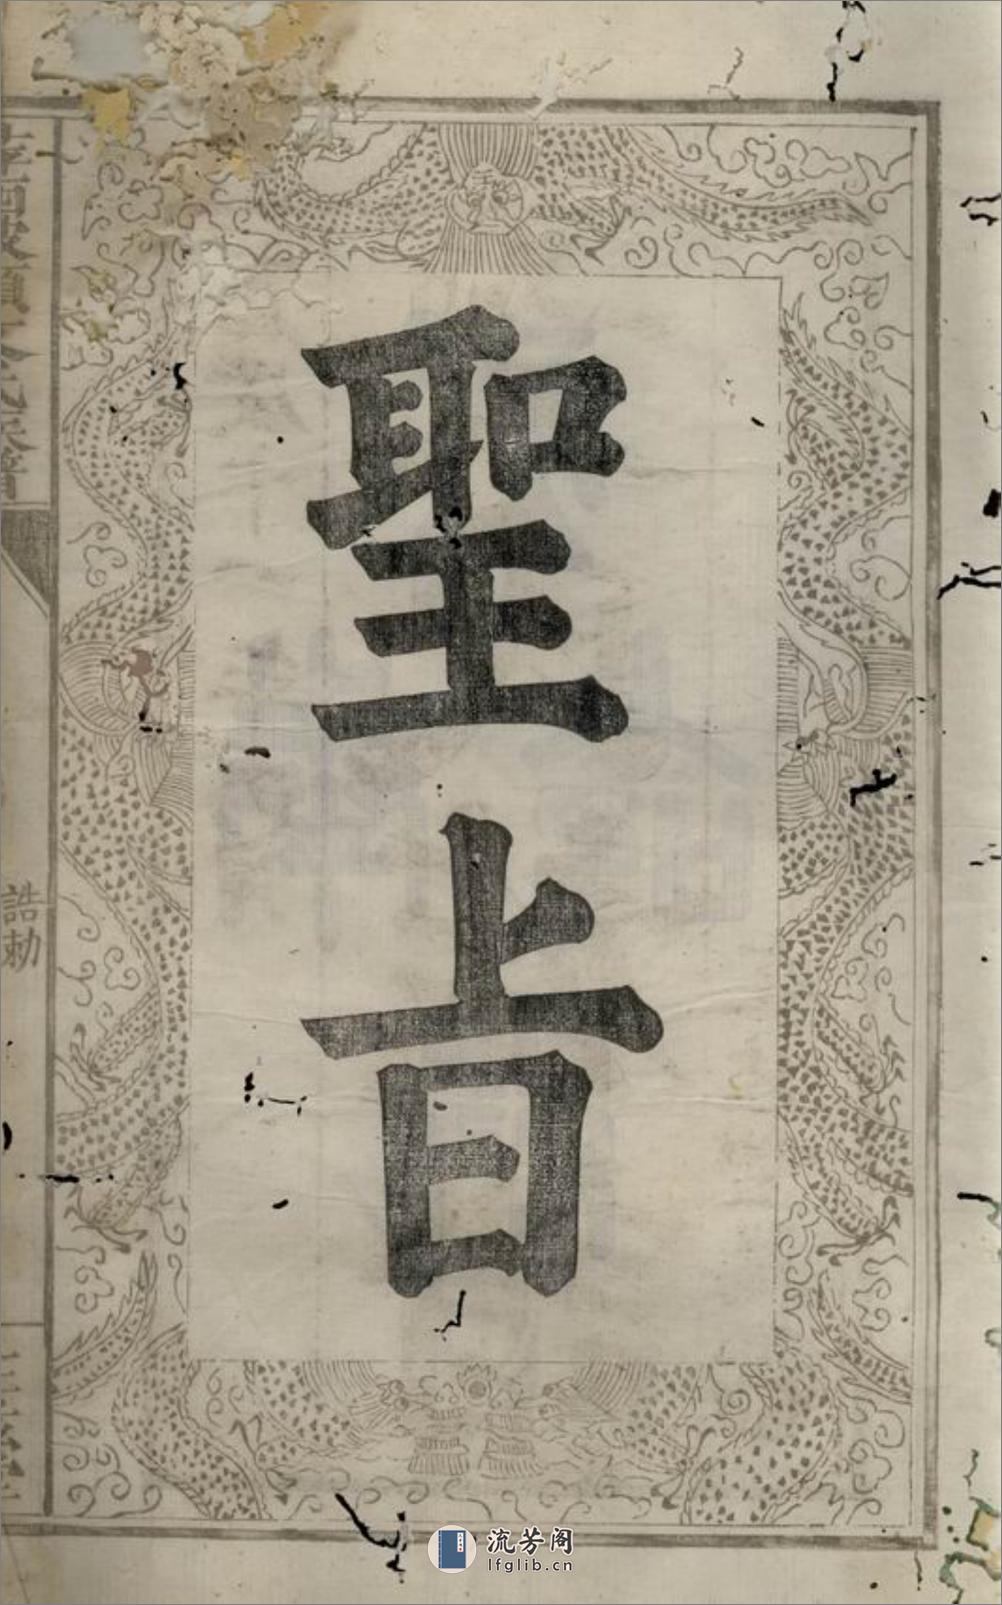 聖旨
誥勅
流芳阁
lfglib.cn